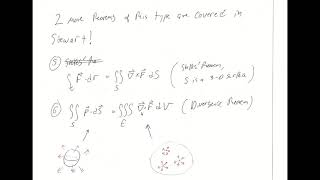 2 more theorems of this type are covered in
Stewart!
⑤ ~~Stokes' Thm~~
∫ F⃗·dr = ∬ ∇⃗×F⃗·dS (Stokes' Theorem,
C S S is a 3-D surface)
⑥ ∬ F⃗·dS = ∭ ∇⃗·F⃗ dV (Divergence Theorem)
S E